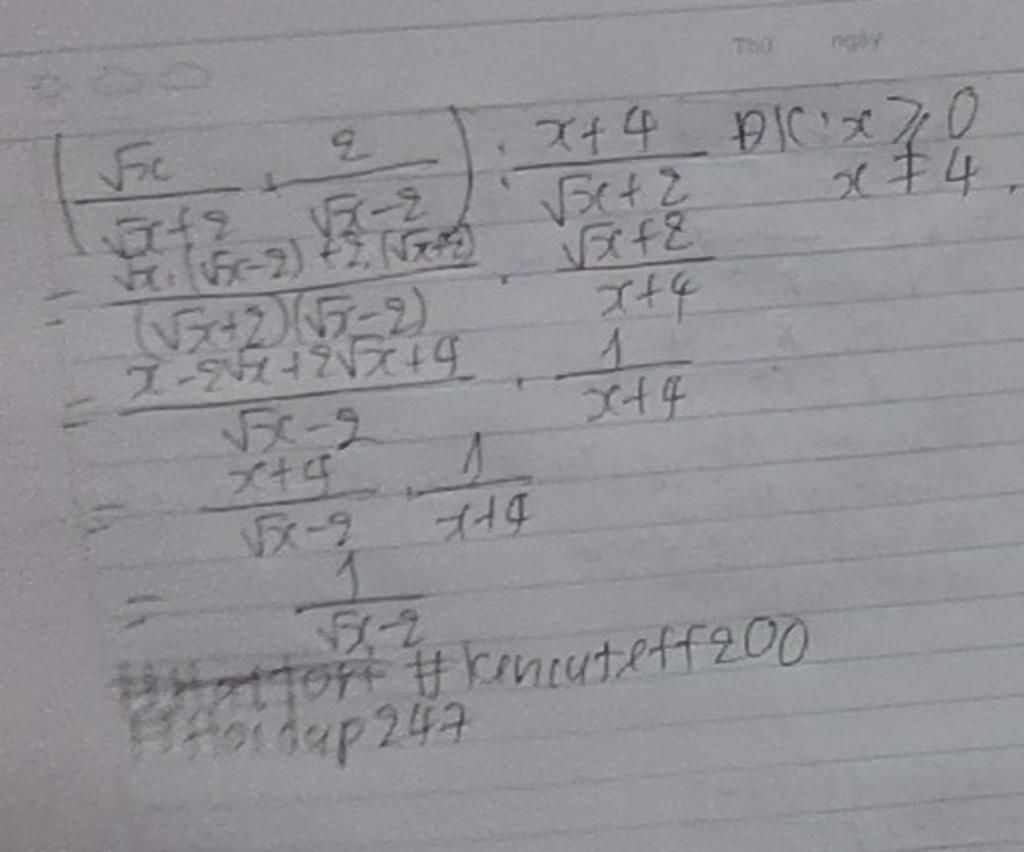 Thứ ngày
(√x/(√x+2) + 2/(√x-2)) : (x+4)/(√x+2) ĐK: x ≥ 0
x ≠ 4.
= (√x.(√x-2) + 2.(√x+2))/((√x+2)(√x-2)) . (√x+2)/(x+4)
= (x-2√x+2√x+4)/(√x-2) . 1/(x+4)
= (x+4)/(√x-2) . 1/(x+4)
= 1/(√x-2)
#kencuteff200
#hoidap247